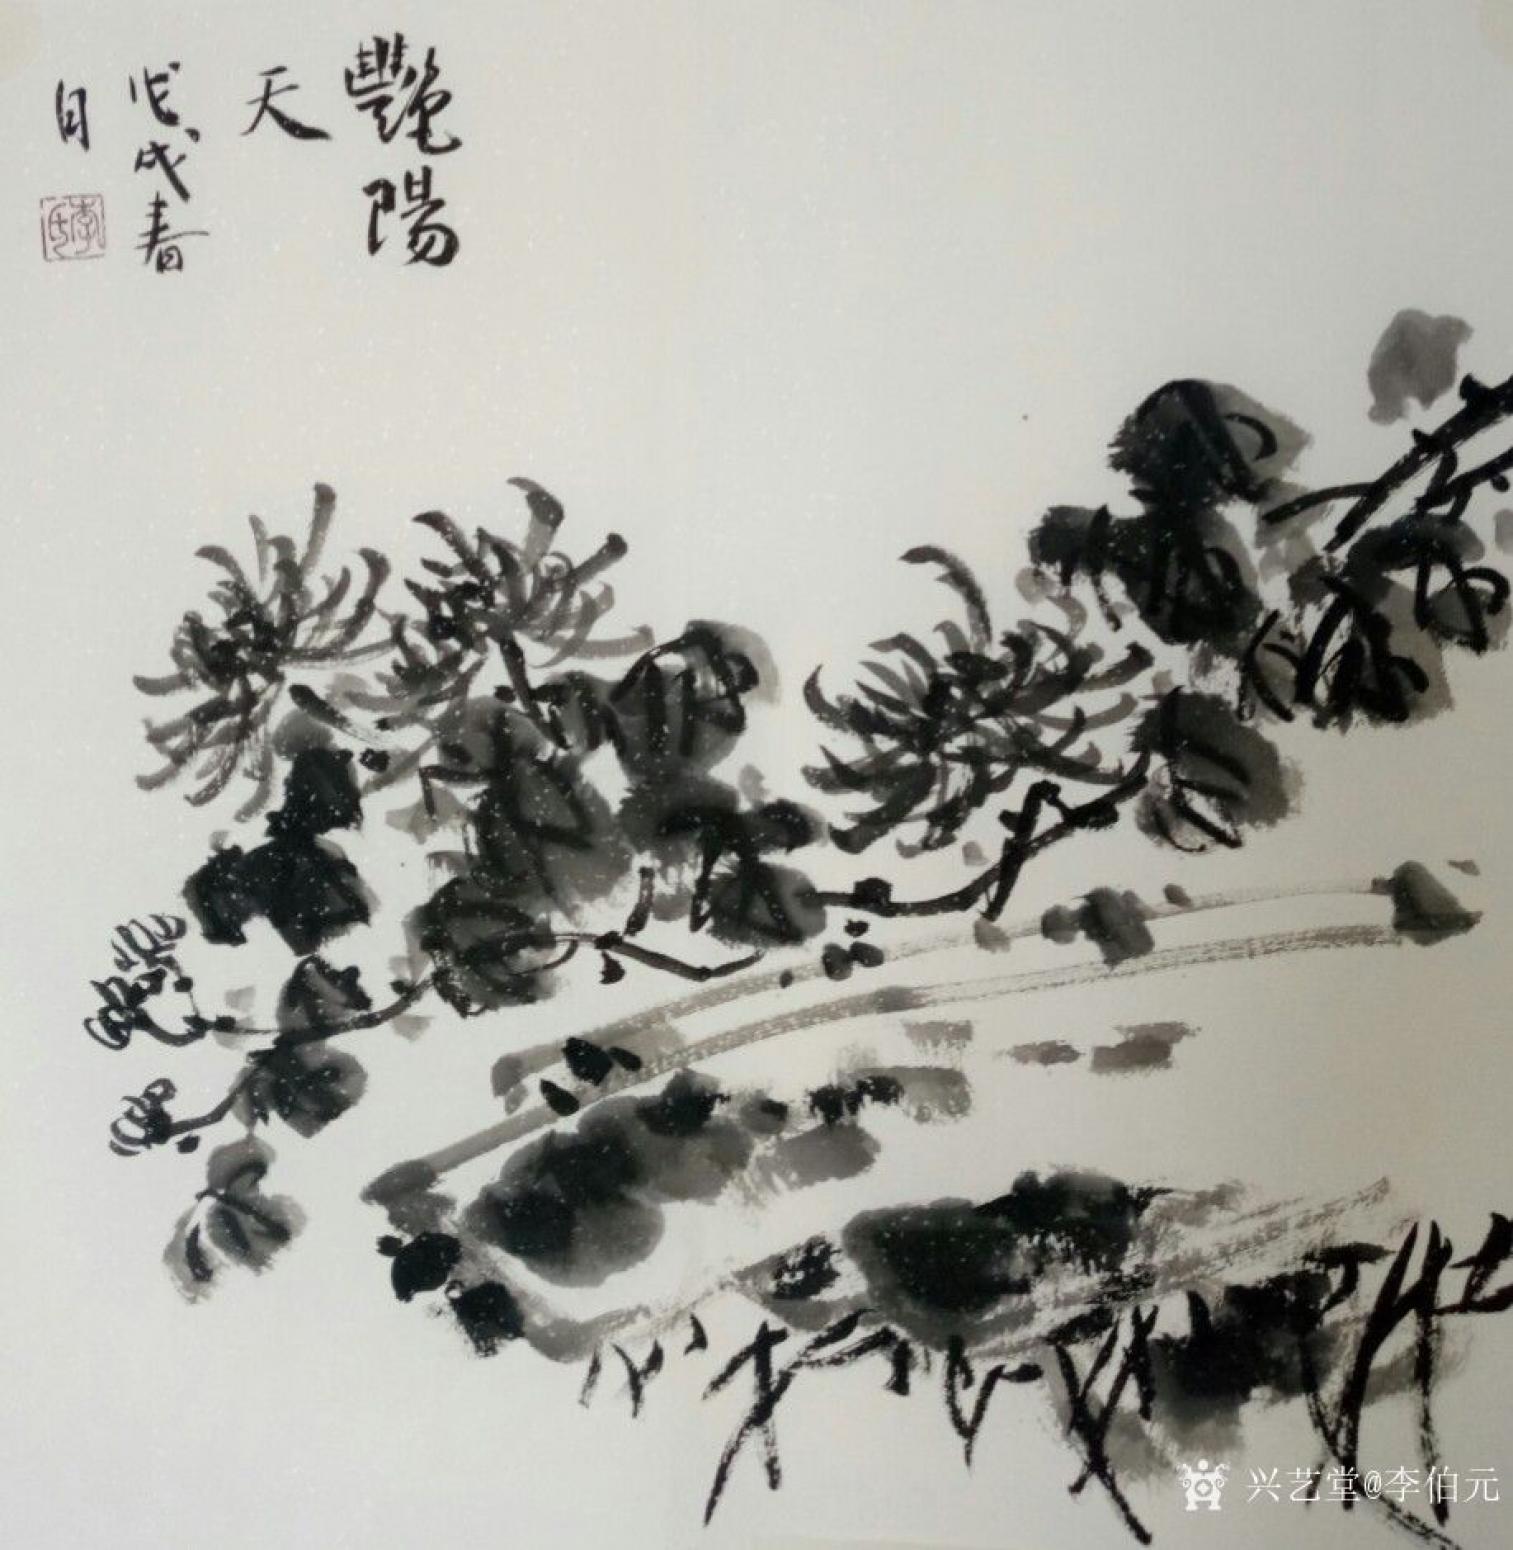 艷陽
天
戊戌春
月
李氏
兴艺堂@李伯元